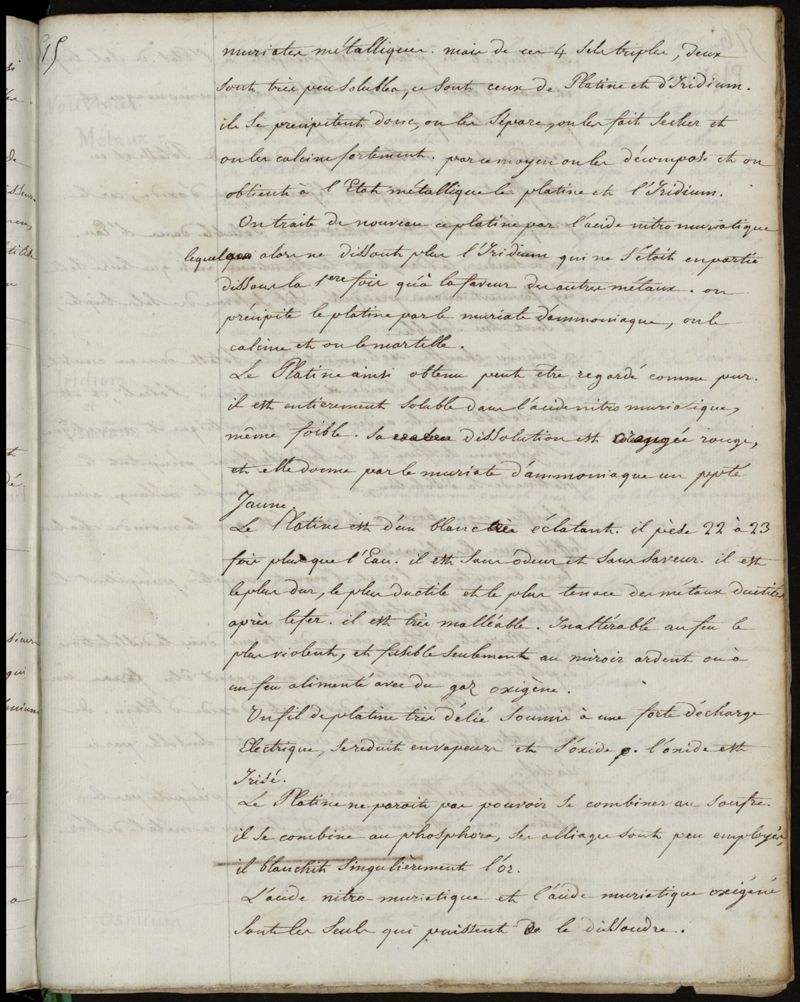 15
muriates métalliques. mais de ces 4 sels triples, deux
sont très peu solubles, ce sont ceux de Platine et d'Iridium.
ils se précipitent donc, on les sépare, on les fait secher et
on les calcine fortement. par ce moyen on les décompose et on
obtient à l'Etat métallique le platine et l'Iridium.
On traite de nouveau ce platine par l'acide nitro muriatique
lequel qui alors ne dissout plus l'Iridium qui ne s'étoit en partie
dissous la 1ere fois qu'à la faveur des autres métaux. on
précipite le platine par le muriate d'ammoniaque, on le
calcine et on le martelle.
Le Platine ainsi obtenu peut etre regardé comme pur.
il est entierement soluble dans l'acide nitro muriatique,
même foible. sa dissolution est orangée rouge,
et elle donne par le muriate d'ammoniaque un ppté
Jaune.
Le Platine est d'un blanc très éclatant. il pèse 22 à 23
fois plus que l'Eau. il est sans odeur et sans saveur. il est
le plus dur, le plus ductile et le plus tenace des métaux ductiles
après le fer. il est très malléable. Inaltérable au feu le
plus violent, et fusible seulement au miroir ardent ou à
un feu alimenté avec du gaz oxigène.
Un fil de platine très délié soumis à une forte décharge
Electrique, se reduit en vapeurs et s'oxide. l'oxide est
Irisé.
Le Platine ne paroit pas pouvoir se combiner au soufre.
il se combine au phosphore, ses alliages sont peu employés,
il blanchit singulièrement l'or.
L'acide nitro-muriatique et l'acide muriatique oxigéné
sont les seuls qui puissent le dissoudre.